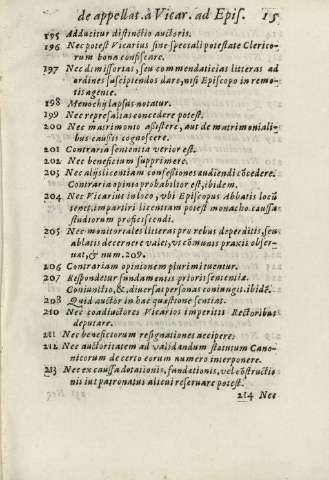 de appellat. à Vicar. ad Epis. 15
195 Adducitur distinctio auctoris.
196 Nec potest Vicarius sine speciali potestate Clerico-
rum bona confiscare.
197 Nec dimissorias, seu commendaticias litteras ad
ordines suscipiendos dare, nisi Episcopo in remo-
tis agente.
198 Menochij lapsus notatur.
199 Nec represalias concedere potest.
200 Nec matrimonio assistere, aut de matrimoniali-
bus causis cognoscere.
201 Contraria sententia verior est.
202 Nec beneficium supprimere.
203 Nec alijs licentiam confessiones audiendi cōcedere.
Contraria opinio probabilior est, ibidem.
204 Nec Vicarius in loco, vbi Episcopus Abbatis locū
tenet, impartiri licentiam potest monacho. caussa
studiorum proficiscendi.
205 Nec monitoriales litteras pro rebus deperditis, seu
ablatis decernere valet, vt cōmunis praxis obser-
uat, & num. 209.
206 Contrariam opinionem plurimi tuentur.
207 Respondetur fundamentis prioris sententiæ.
Coniunctio, &, diuersas personas coniungit. ibidē.
208 Quid auctor in hac quæstione sentiat.
210 Nec coadiutores Vicarios imperitis Rectoribus
deputare.
211 Nec beneficiorum resignationes accipere.
212 Nec auctoritatem ad validandum statutum Cano-
nicorum de certo eorum numero interponere.
213 Nec ex caussa dotationis, fundationis, vel cōstructio
nis ius patronatus alicui reseruare potest.
214 Nec